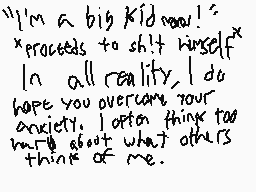 "I'm a big kid now!"
*proceeds to sh!t himself*
In all reality, I do
hope you overcome your
anxiety. I often think too
hard about what others
think of me.